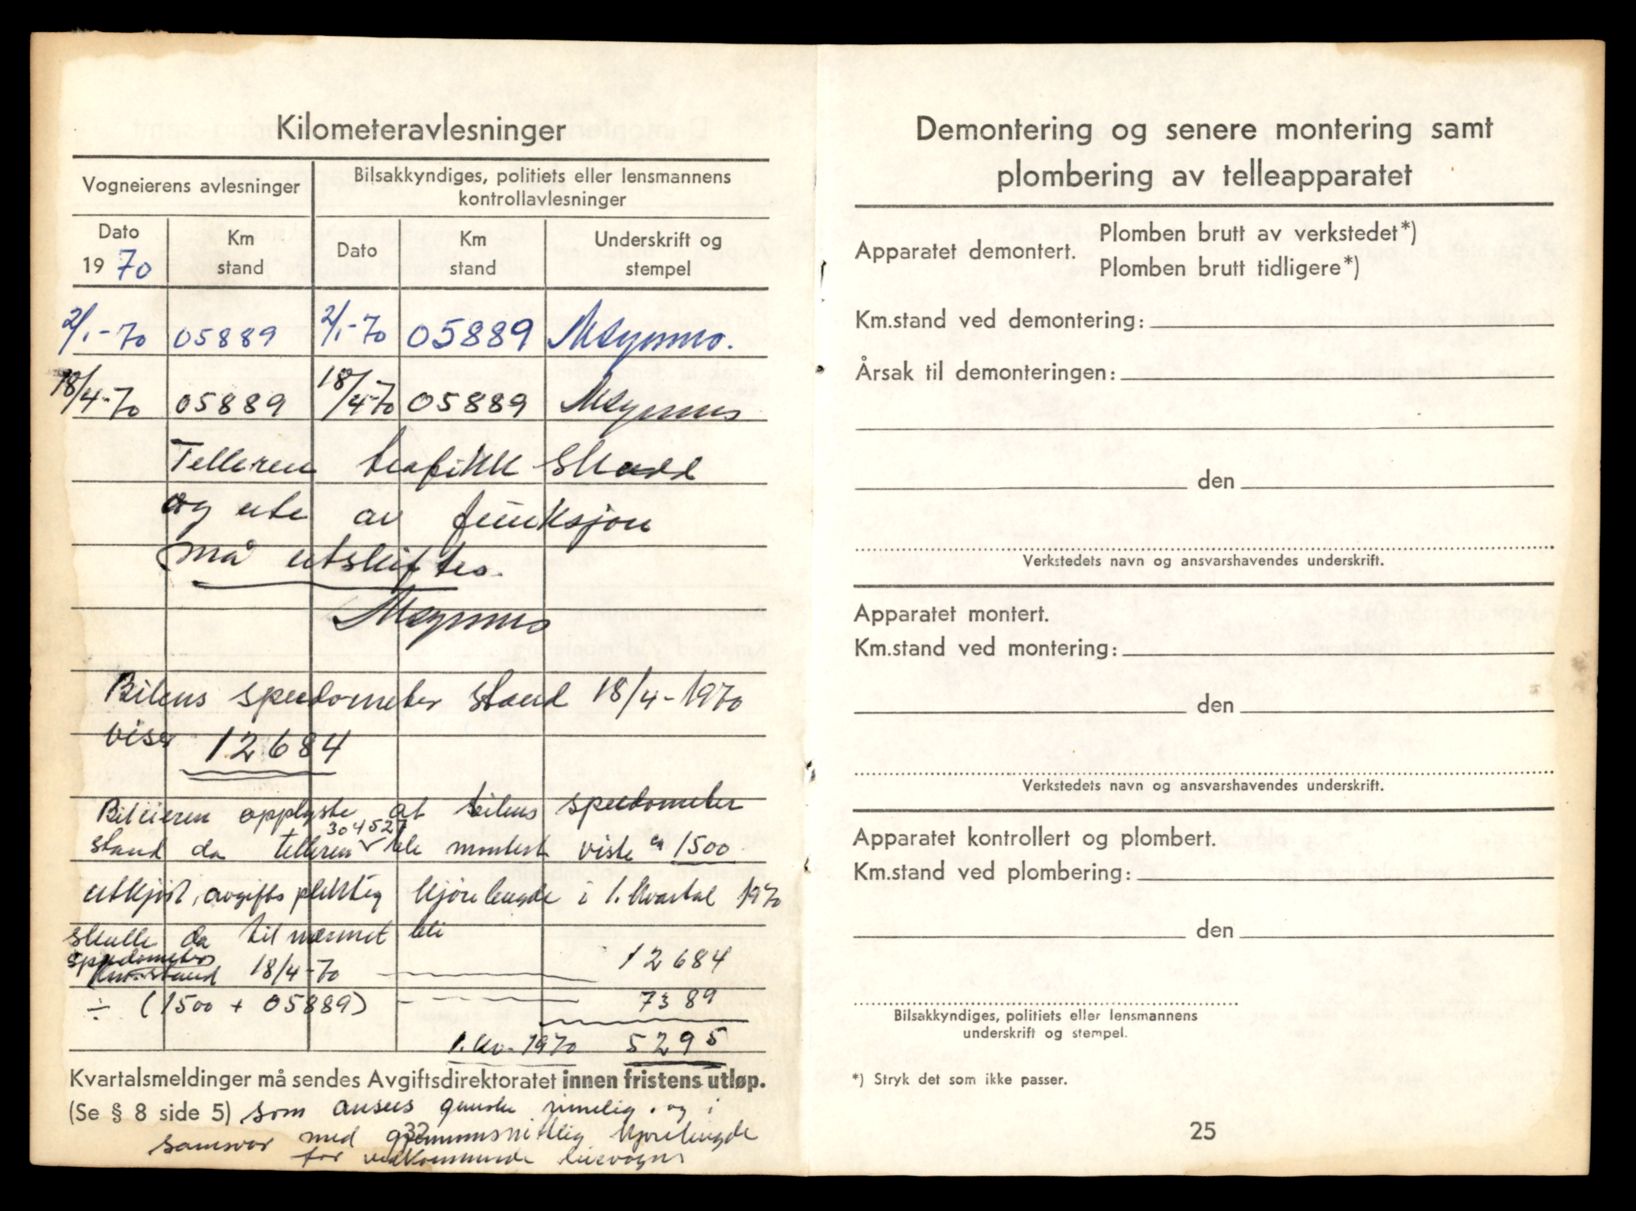 Kilometeravlesninger
Vogneierens avlesninger
Bilsakkyndiges, politiets eller lensmannens
kontrollavlesninger
Dato
1970
Km
stand
Dato
Km
stand
Underskrift og
stempel
2/1-70 05889 2/1-70 05889
18/4-70 05889 18/4-70 05889
Telleren trafikk skadd
og ute av funksjon
må utskiftes.
Bilens speedometer stand 18/4-1970
viser 12684
Bileieren opplyste at bilens speedometer
304527
stand da telleren ble montert viste ca 1500
utkjørt, avgiftspliktig kjørelengde i 1. kvartal 1970
skulle da tilnærmet bli
speedometer
stand 18/4-70 12684
÷ (1500 + 05889) 7389
1. kv. 1970 5295
Kvartalsmeldinger må sendes Avgiftsdirektoratet innen fristens utløp.
(Se § 8 side 5) som anses ganske rimelig. og i
samsvar med gjennomsnittlig kjørelengde
for vedkommende
Demontering og senere montering samt
plombering av telleapparatet
Apparatet demontert.
Plomben brutt av verkstedet*)
Plomben brutt tidligere*)
Km.stand ved demontering:
Årsak til demonteringen:
den
Verkstedets navn og ansvarshavendes underskrift.
Apparatet montert.
Km.stand ved montering:
den
Verkstedets navn og ansvarshavendes underskrift.
Apparatet kontrollert og plombert.
Km.stand ved plombering:
den
Bilsakkyndiges, politiets eller lensmannens
underskrift og stempel.
*) Stryk det som ikke passer.
25